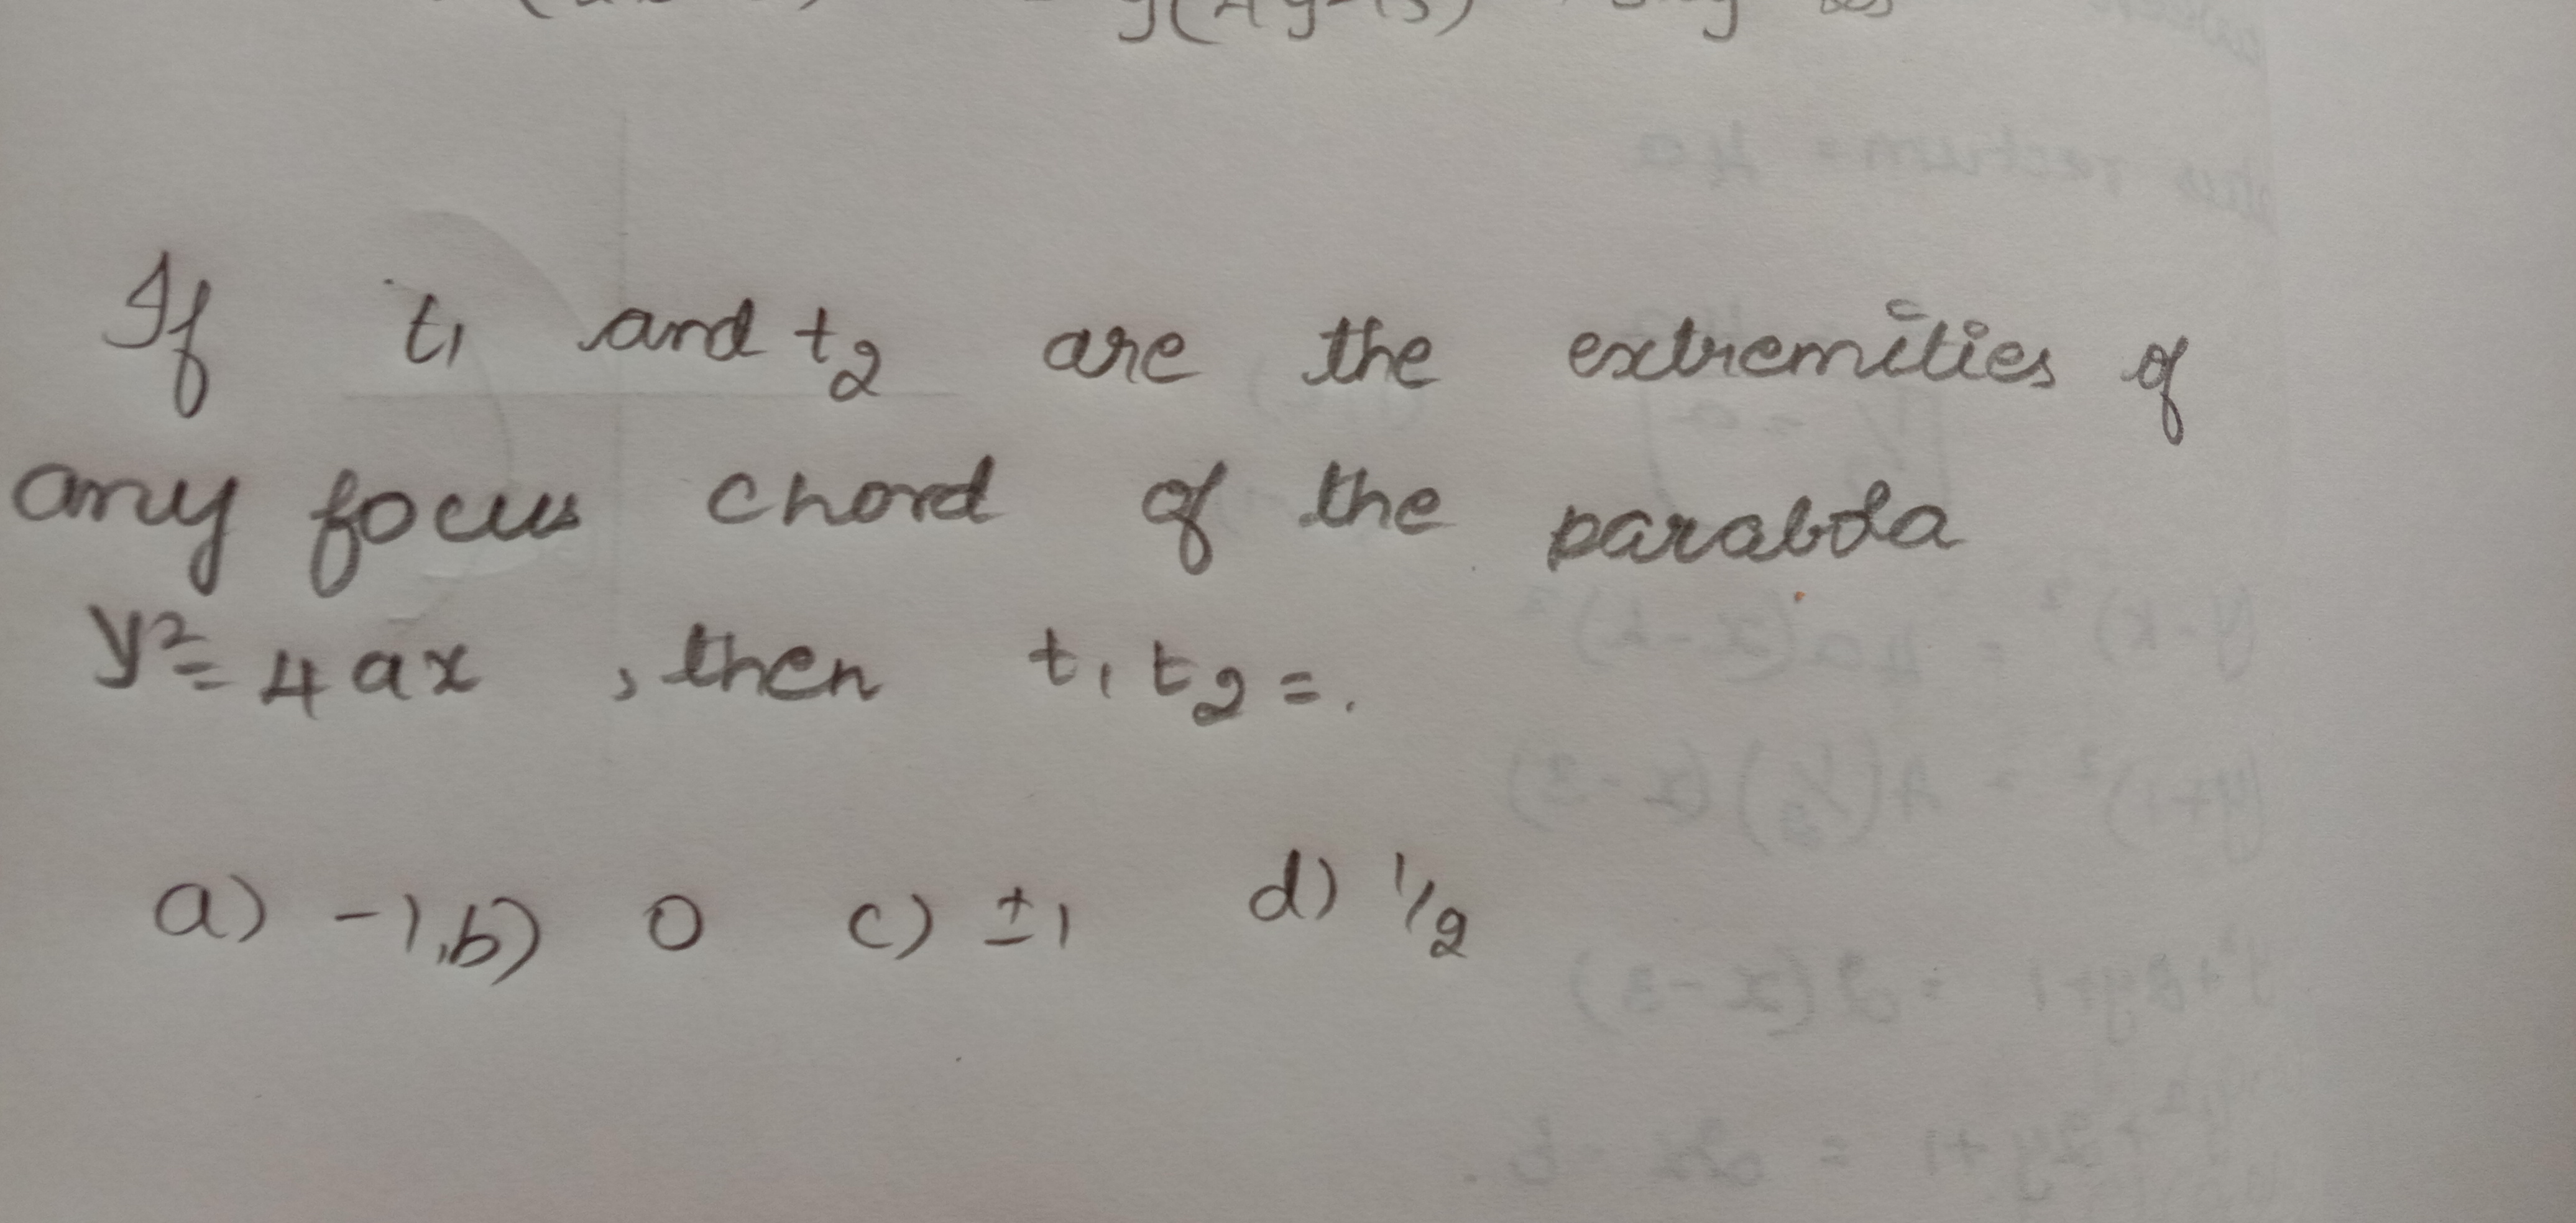 If t₁ and t₂ are the extremities of
any focus chord of the parabola
y² = 4ax , then t₁t₂ = .
a) -1, b) 0 c) ±1 d) 1/2